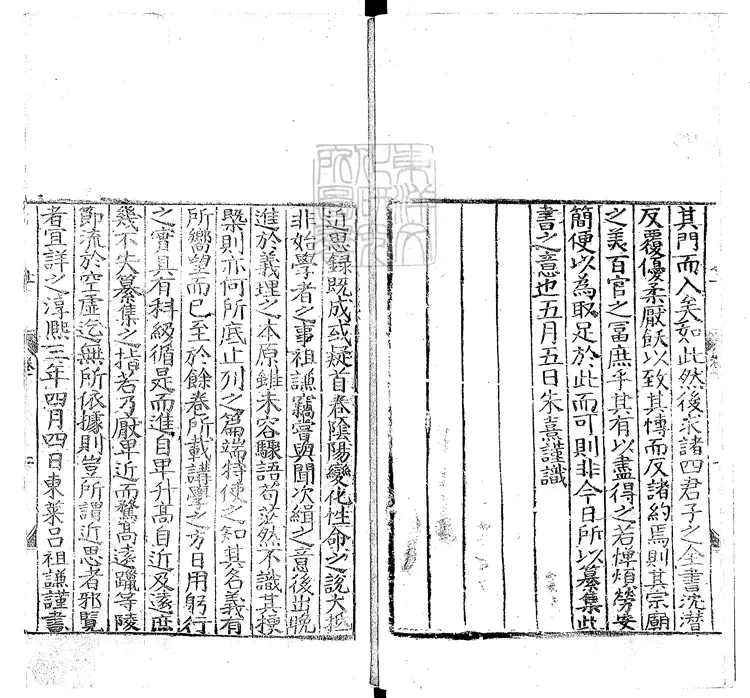 其門而入矣如此然後求諸四君子之全書沈潛
反覆優柔厭飫以致其博而反諸約焉則其宗廟
之美百官之富庶乎其有以盡得之若憚煩勞安
簡便以為取足於此而可則非今日所以纂集此
書之意也五月五日朱熹謹識
近思録既成或疑首卷陰陽變化性命之說大抵
非始學者之事祖謙竊嘗與聞次緝之意後出晩
進於義理之本原雖未容驟語苟茫然不識其梗
槩則亦何所底止列之篇端特使之知其名義有
所嚮望而已至於餘卷所載講學之方日用躬行
之實具有科級循是而進自卑升髙自近及逺庶
幾不失纂集之指若乃厭卑近而騖髙逺躐等陵
節流於空虚迄無所依據則豈所謂近思者邪覽
者宜詳之淳熙三年四月四日東萊吕祖謙謹書